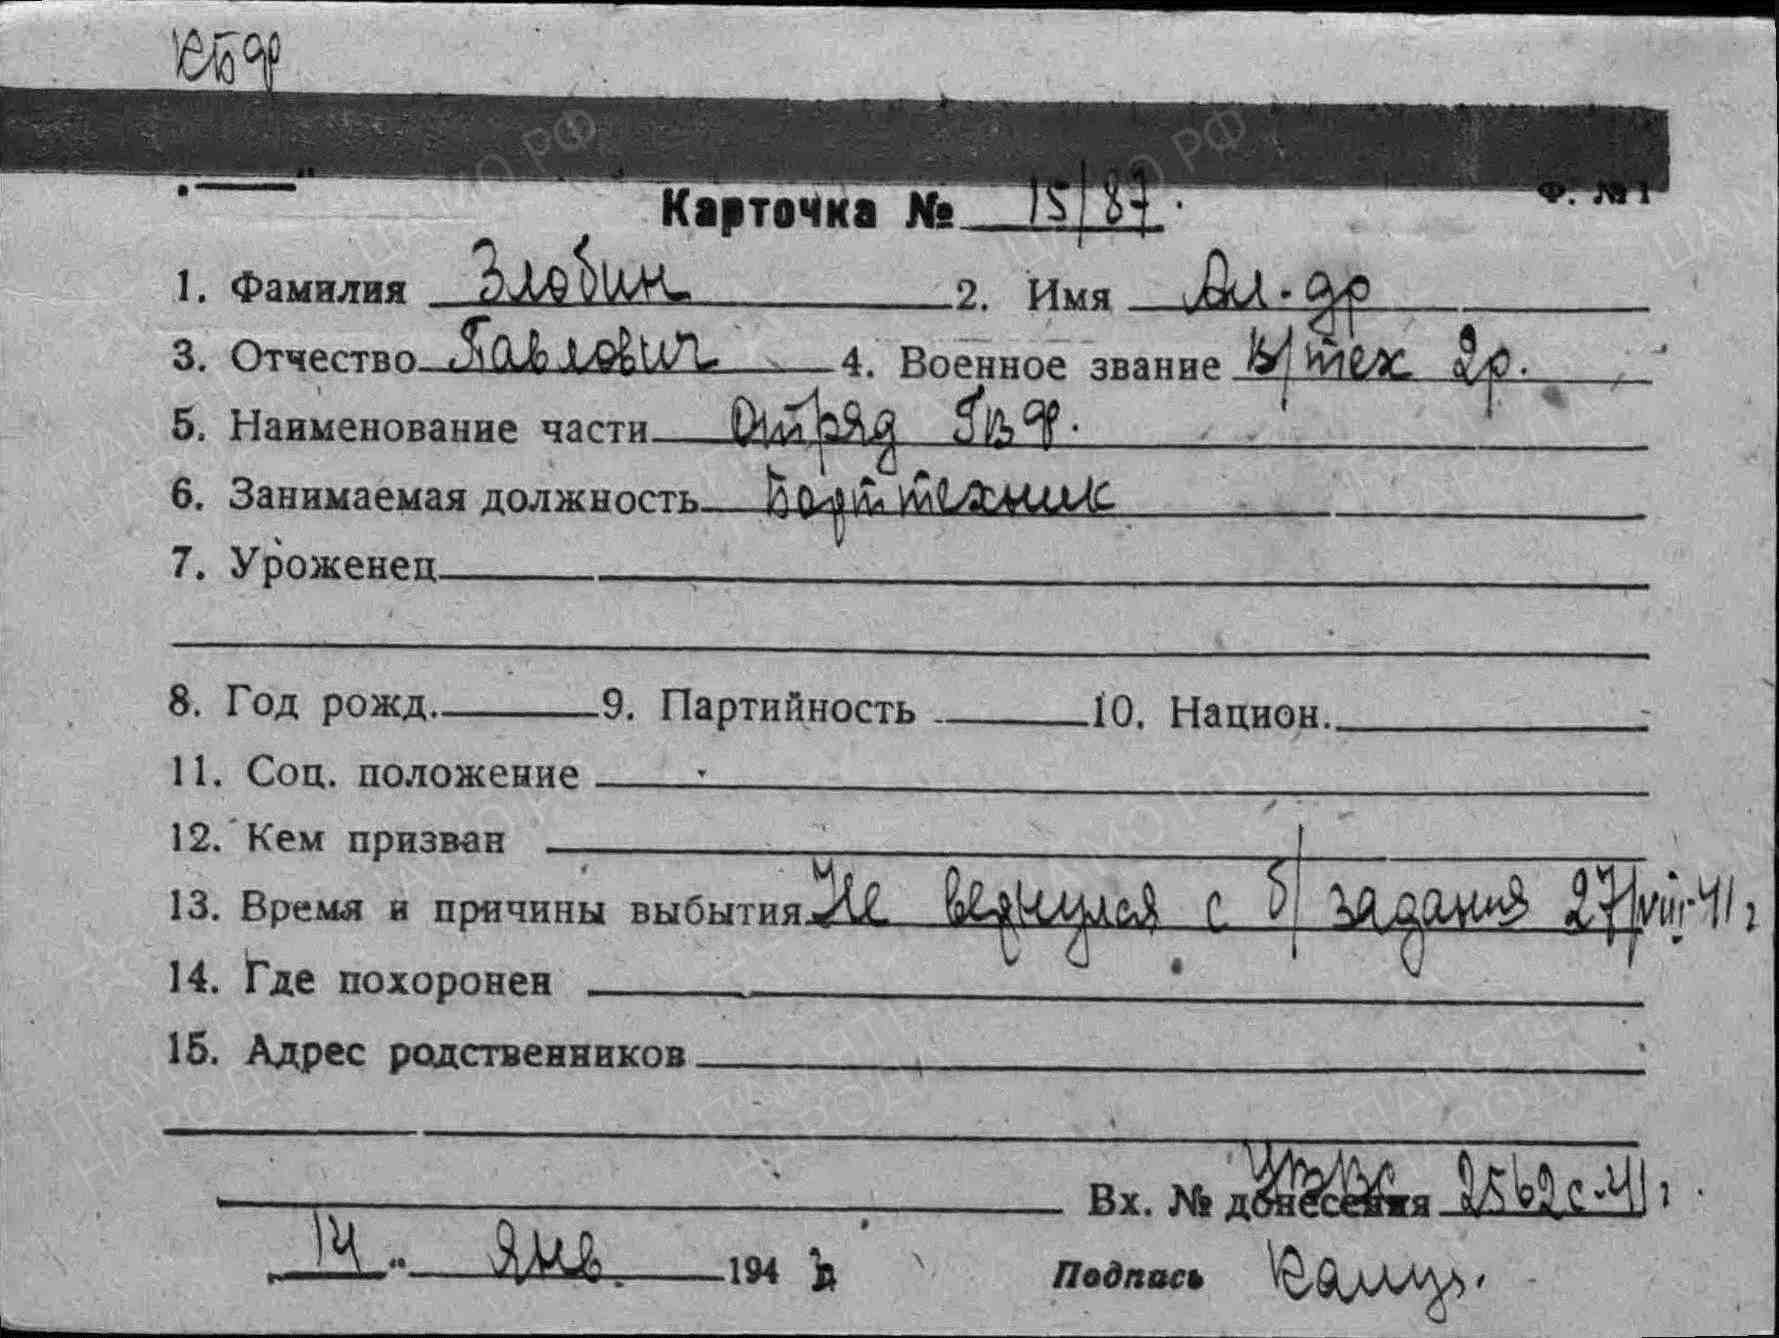 КБф
Ф. № 1
Карточка № 15/87.
1. Фамилия Злобин 2. Имя Ал-др
3. Отчество Павлович 4. Военное звание в/тех 2р.
5. Наименование части Отряд ГВФ.
6. Занимаемая должность Борттехник
7. Уроженец
8. Год рожд. 9. Партийность 10. Национ.
11. Соц. положение
12. Кем призван
13. Время и причины выбытия Не вернулся с б/задания 27/VIII-41г
14. Где похоронен
15. Адрес родственников
УВВС
Вх. № донесения 2562с-41г.
14 " янв. 194 Подпись